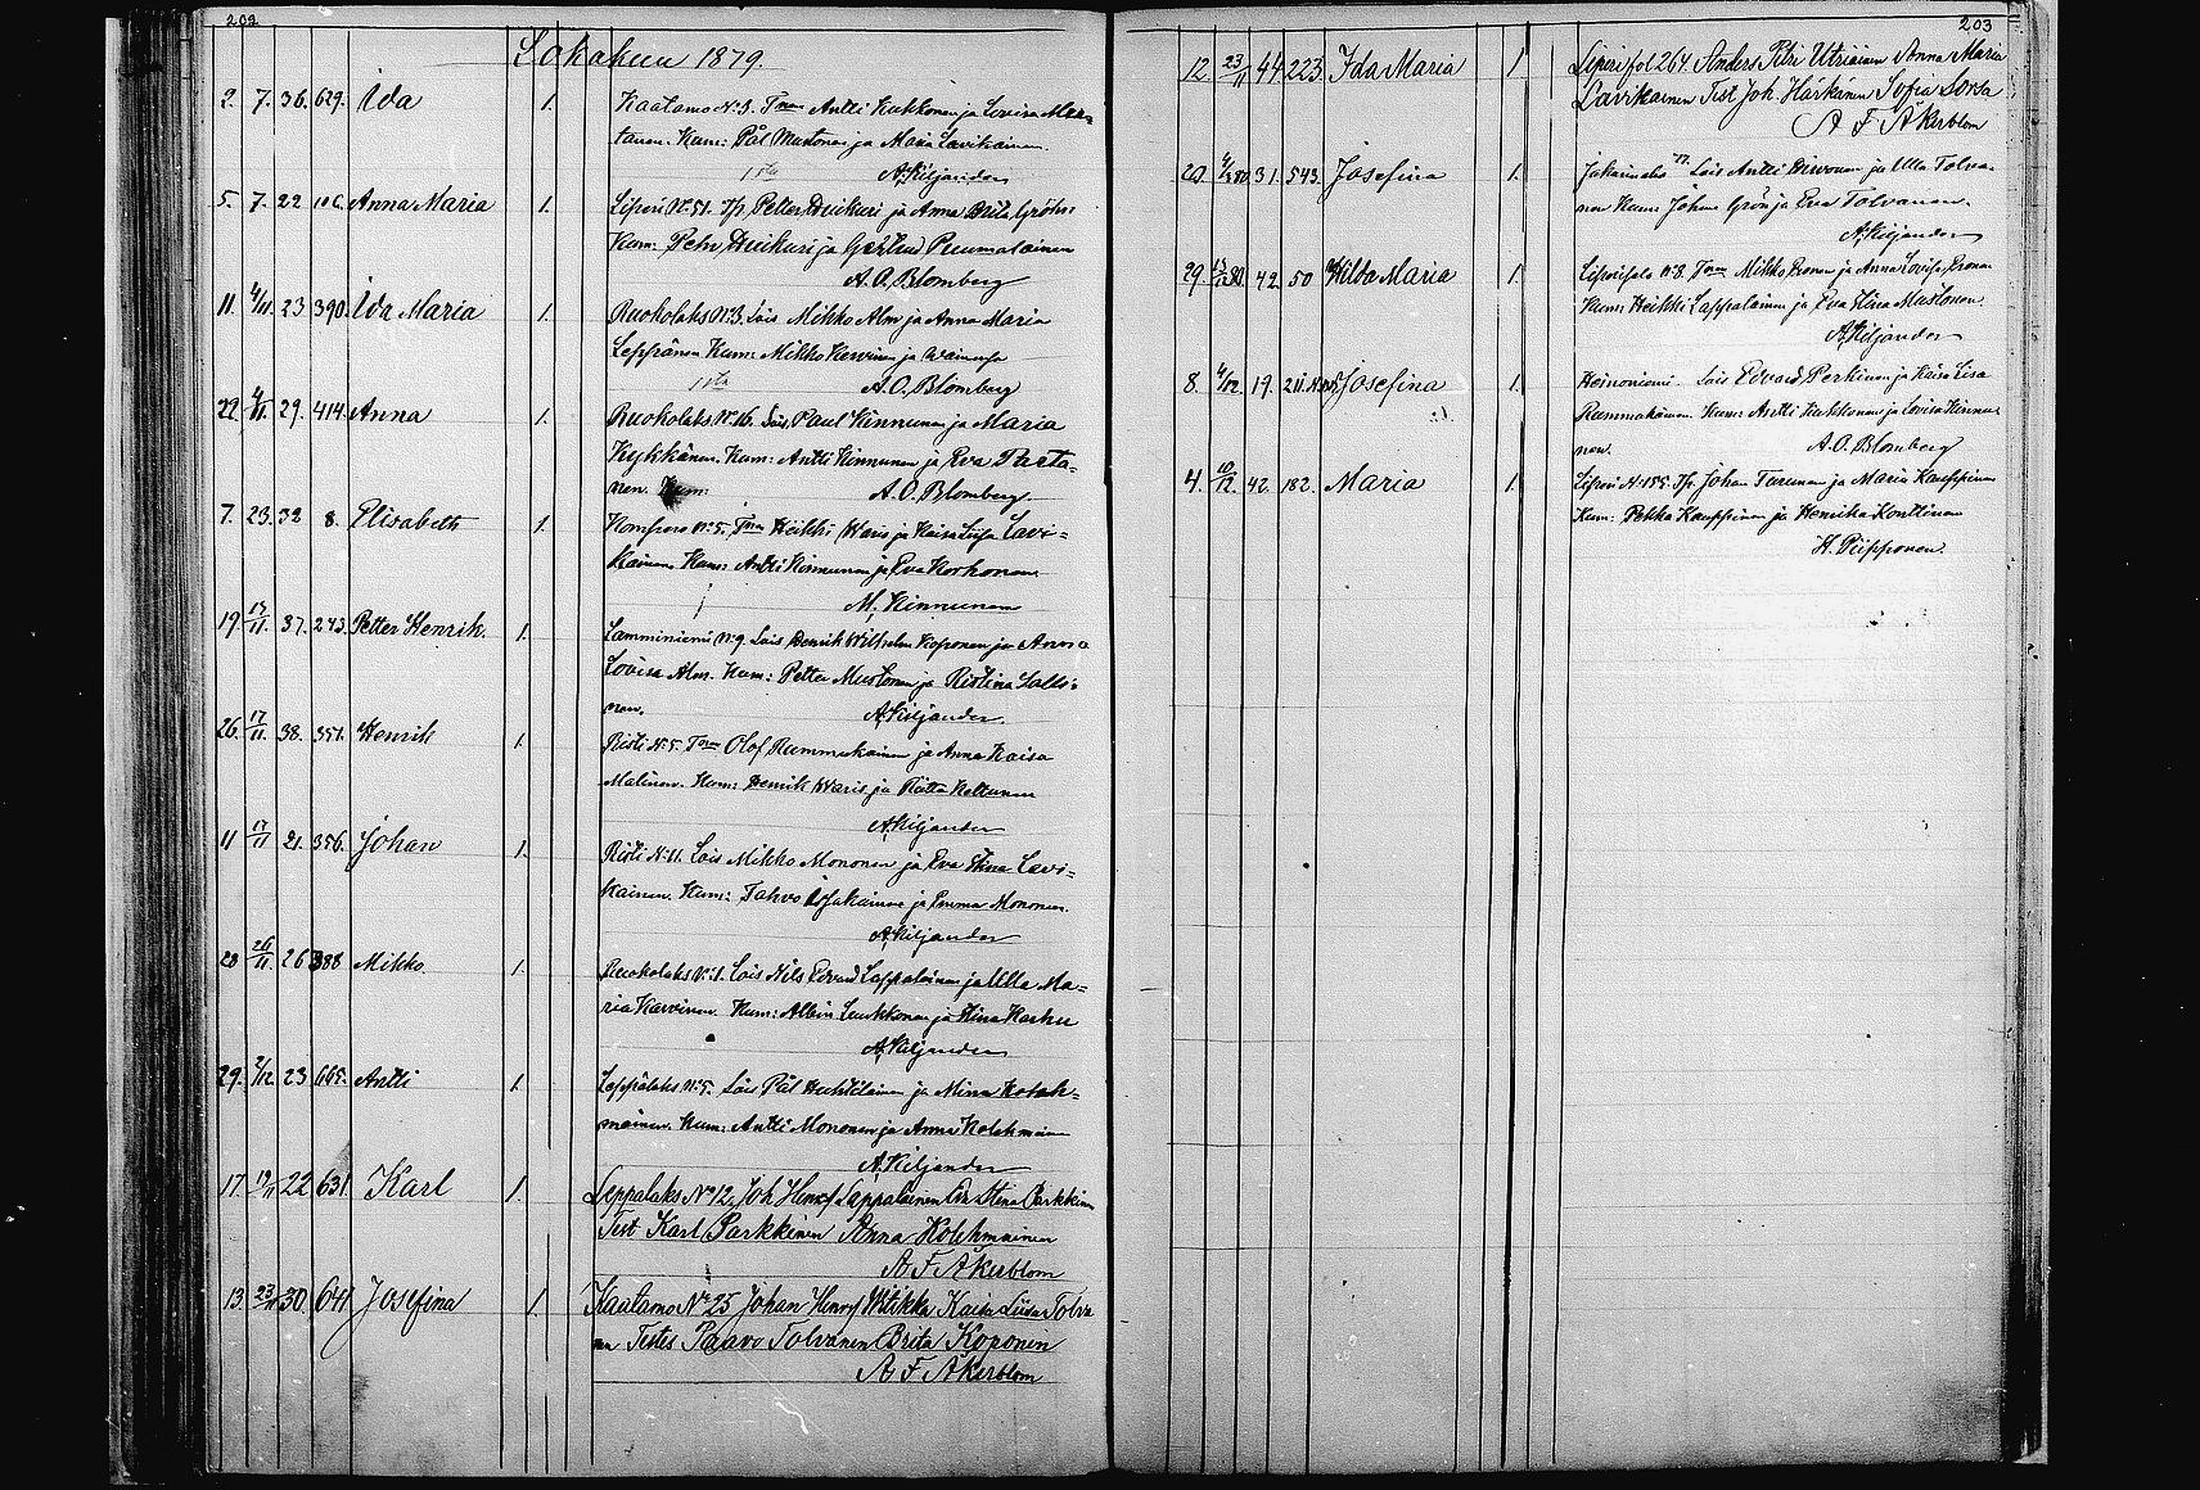 202
Lokakuu 1879.
2. 7. 36. 629. Ida 1. Kaatamo N:o 3. Antti Kukkonen ja Lovisa Mus=
tonen. Kum: Pål Mustonen ja Maria Lavikainen.
A. Kiljander
5. 7. 22 106. Anna Maria 1. Liperi N:o 51. Petter Huikuri ja Anna Brita Gröhn
Kum: Petr Huikuri ja Gertrud Puumalainen
A. O. Blomberg
11. 4/11. 23 390. Ida Maria 1. Ruokolaks N:o 3. Lois Mikko Alm ja Anna Maria
Leppänen Kum: Mikko Kervinen ja
A. O. Blomberg
22. 4/11. 29. 414. Anna 1. Ruokolaks N:o 16. Lois. Paul Kinnunen ja Maria
Kykkänen. Kum: Antti Kinnunen ja Eva Tasta=
nen. Kum: A. O. Blomberg
7. 23. 32 8. Elisabeth 1. Kompero N:o 5. Heikki Waris ja Kaisa Liisa Lavi=
kainen. Kum: Antti Kinnunen ja Eva Korhonen
M. Kinnunen
19. 37. 243. Petter Henrik. 1. Lamminiemi N:o 9. Lois Henrik Wilhelm Koponen ja Anna
Lovisa Alm. Kum: Petter Mustonen ja Ristina Salli=
nen. A. Kiljander.
26. 17/11. 38. 351. Henrik 1. Risti N:o 5. Olof Rummukainen ja Anna Kaisa
Malinen. Kum: Henrik Waris ja Riitta Keltunen
A. Kiljander
11 17/11 21. 356. Johan 1. Risti N:o 11. Lois Mikko Mononen ja Eva Stina Lavi=
kainen. Kum: Tahvo ja Emma Mononen.
A. Kiljander
28 26/11. 26 388 Mikko. 1. Ruokolaks N:o 1. Lois Nils Edvard Lappalainen ja Ulla Ma=
ria Karvinen. Kum: Albin Luukkonen ja Stina Karhu
A. Kiljander
29. 2/12. 23 665. Antti 1. Leppälaks N:o 5. Lois Pål Huhtilainen ja Mina Koleh=
mainen. Kum: Antti Mononen ja Anna Kolehmainen
A. Kiljander
17. 19/11 22 631. Karl 1. Leppalaks No 12. Joh Henr Lappalainen Stina Parkkinen
Test Karl Parkkinen Anna Kolehmainen
A F Åkerblom
13. 23/11 30. 641 Josefina 1. Kaatamo No 25 Johan Henr Witikka Kaisa Liisa Tolva
nen Testes Paavo Tolvanen Brita Koponen
A F Åkerblom
203
12. 23/11 44 223. Ida Maria 1 Liperi fol 264. Anders Petri Utriainen Anna Maria
Lavikainen Test Joh. Härkänen Sofia Sorsa
A F Åkerblom
20. 31. 543. Josefina 1. Lois Antti Hirvonen ja Ulla Tolva-
nen Kum: Johan Grön ja Eva Tolvanen.
A. Kiljander
29. 42 50 Hilda Maria 1. N:o 8. Mikko Pronen ja Anna Lovisa
Kum: Heikki Lappalainen ja Eva Stina Mustonen.
A. Kiljander
8. 4/12. 19. 211. Josefina 1. Heinoniemi. Lois Edvard Perkinen ja Kaisa Lisa
Rummukainen. Kum: Antti Kukkonen ja Lovisa Kinnu
nen. A. O. Blomberg
4. 10/12. 42. 182. Maria 1. Liperi N:o 155. Johan Turunen ja Maria Kauppinen
Kum: Pekka Kauppinen ja Henrika Konttinen
H. Piipponen.